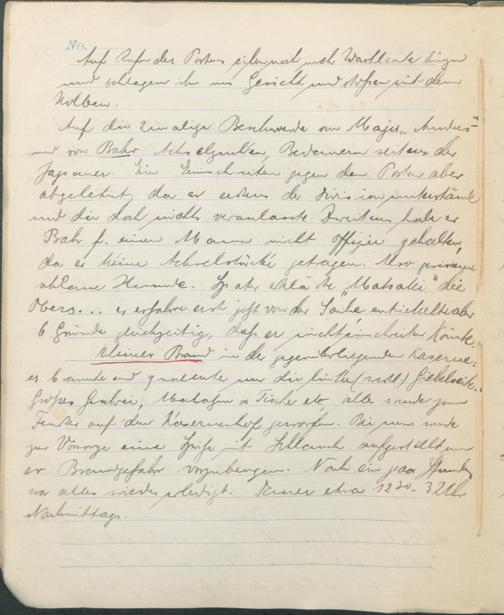 No.
Auf Rufen des Postens eilen noch mehr Wachleute hinzu
und schlagen ihn ins Gesicht und stoßen mit dem
Kolben.
Auf die 2malige Beschwerde von Major Anders
und von Bahr Achselzucken, Bedauern seitens der
Japaner. Ein Einschreiten gegen den Posten aber
abgelehnt, da er erstens der Division unterstände
und die doch nichts veranlasste. Zweitens habe er
Bahr f. einen Mann nicht Offizier gehalten,
da er keine Achselstücke getragen. Also
Hunde. Später erklärte "Matsaki" die
Obers... er erfahre erst jetzt von der Sache entwickelte aber
6 Gründe gleichzeitig, daß er nicht einschreiten könnte.
Kleiner Brand in der gegenüberliegenden Kaserne:
es brannte und qualmte nur die linke (nordl) Giebelseite.
Großes Geschrei, Matratzen Tische etc, alles wurde zum
Fenster auf den Kasernenhof geworfen. Bei uns wurde
zur Vorsorge eine Spritze mit Schlauch aufgestellt um
ev. Brandgefahr vorzubeugen. Nach ein paar Stunden
war alles wieder erledigt. Dauer etwa 1230 - 3 Uhr
Nachmittags.